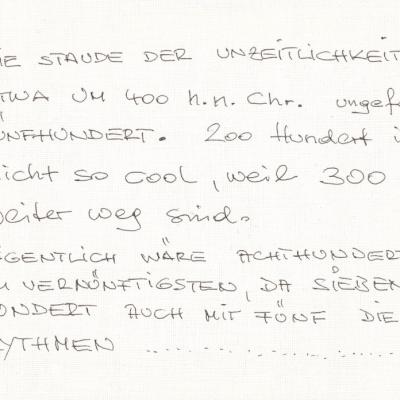 IE STAUDE DER UNZEITLICHKEIT
TWA UM 400 h.n. Chr. ungef
ÜNFHUNDERT. 200 Hundert i
icht so cool, weil 300
weiter weg sind.
IGENTLICH WÄRE ACHTHUNDERT
M VERNÜNFTIGSTEN, DA SIEBEN
UNDERT AUCH MIT FÜNF DIE
RYTHMEN ..................